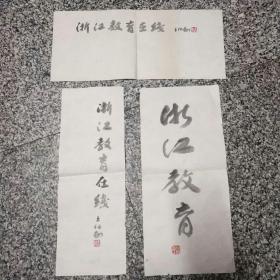 浙江教育在线
浙江教育在线
浙江教育